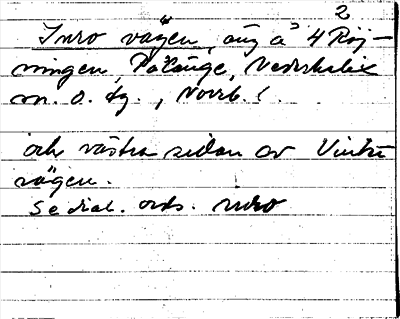 Inro vägen, äng å 4² Röj-
ningen, Påläng, Nederkalix
m. o. tg., Norrb. l.
och västra sidan av Vinter
vägen.
Se dial. ordb. inro